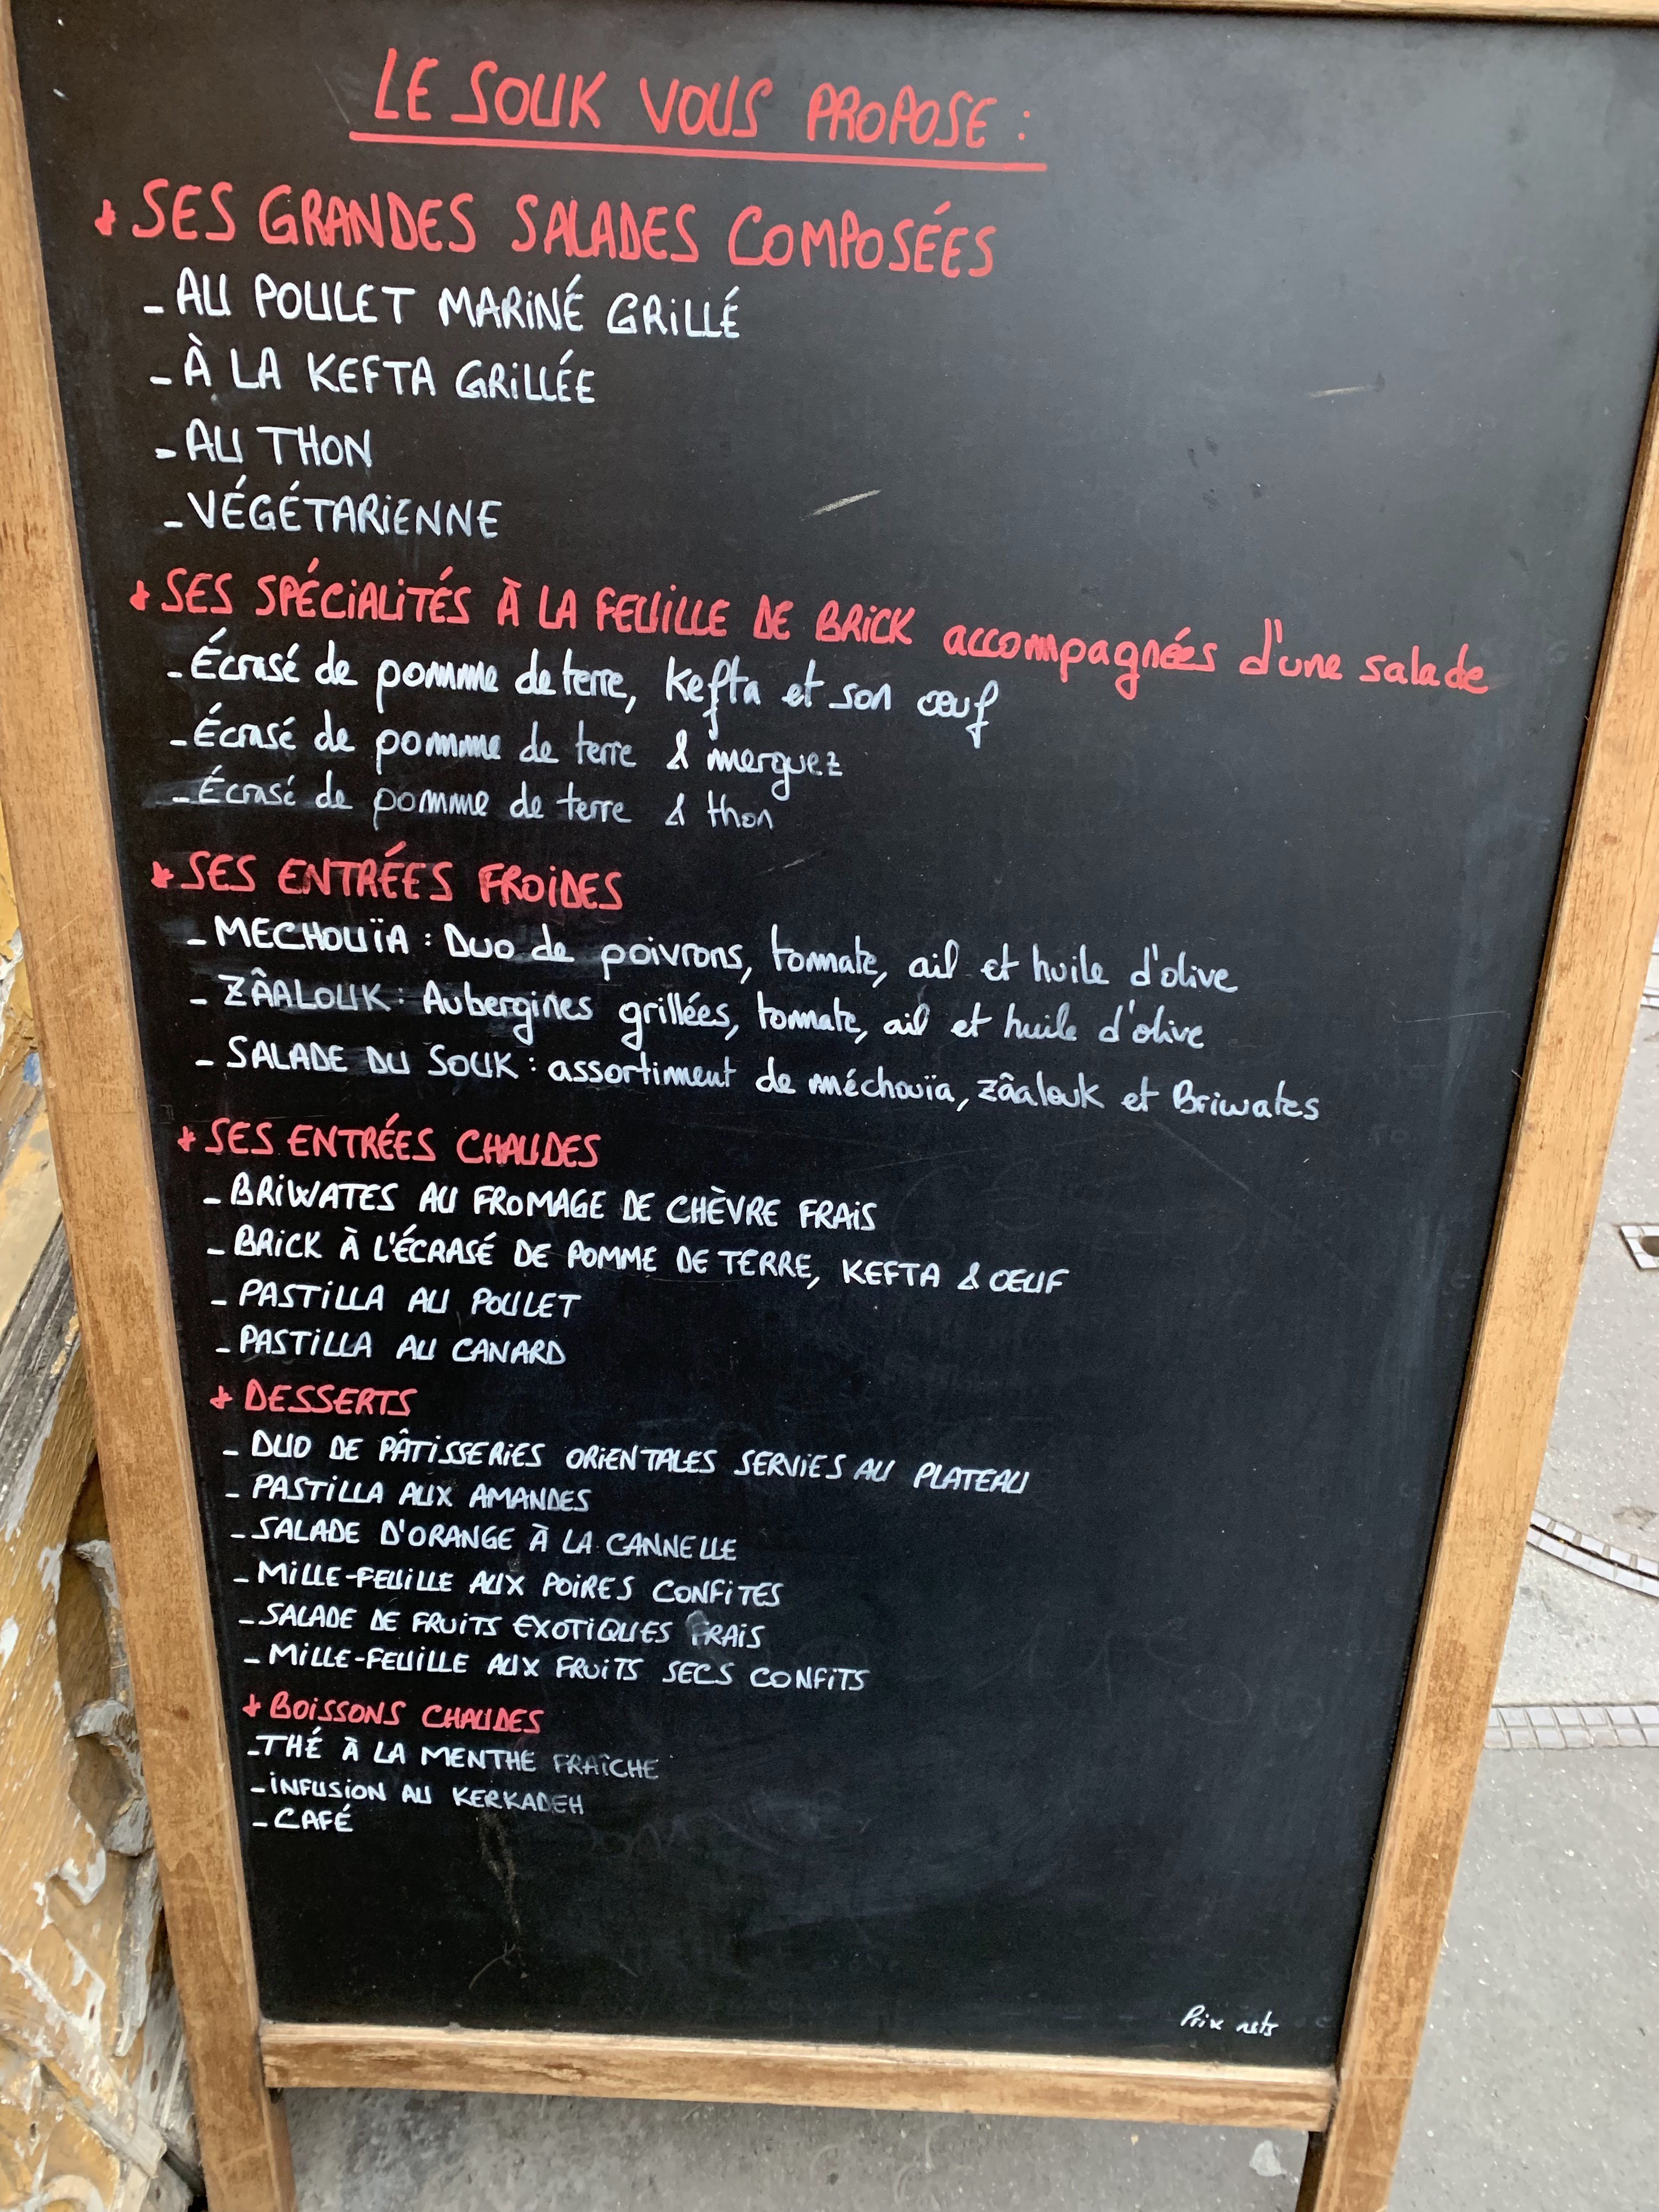 LE SOUK VOUS PROPOSE :
* SES GRANDES SALADES COMPOSÉES
- AU POULET MARINÉ GRILLÉ
- À LA KEFTA GRILLÉE
- AU THON
- VÉGÉTARIENNE
* SES SPÉCIALITÉS À LA FEUILLE DE BRICK accompagnées d'une salade
- Écrasé de pomme de terre, kefta et son œuf
- Écrasé de pomme de terre & merguez
- Écrasé de pomme de terre & thon
* SES ENTRÉES FROIDES
- MECHOUÏA : Duo de poivrons, tomate, ail et huile d'olive
- ZÂALOUK : Aubergines grillées, tomate, ail et huile d'olive
- SALADE DU SOUK : assortiment de méchouïa, zâalouk et Briwates
* SES ENTRÉES CHAUDES
- BRIWATES AU FROMAGE DE CHÈVRE FRAIS
- BRICK À L'ÉCRASÉ DE POMME DE TERRE, KEFTA & ŒUF
- PASTILLA AU POULET
- PASTILLA AU CANARD
* DESSERTS
- DUO DE PÂTISSERIES ORIENTALES SERVIES AU PLATEAU
- PASTILLA AUX AMANDES
- SALADE D'ORANGE À LA CANNELLE
- MILLE-FEUILLE AUX POIRES CONFITES
- SALADE DE FRUITS EXOTIQUES FRAIS
- MILLE-FEUILLE AUX FRUITS SECS CONFITS
* BOISSONS CHAUDES
- THÉ À LA MENTHE FRAÎCHE
- INFUSION AU KERKADEH
- CAFÉ
Prix nets